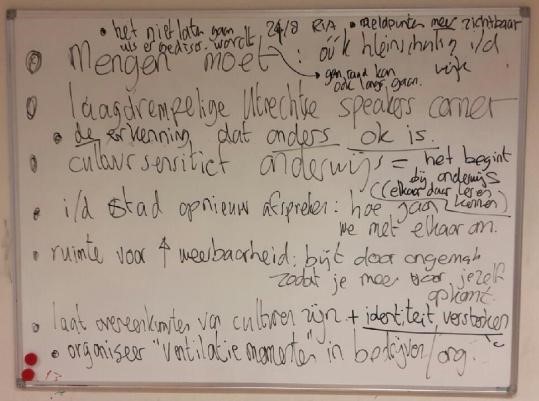 • het niet laten gaan
als er gediscr. wordt
24/8 RvA
• meldpunten meer zichtbaar
Mengen moet : óók kleinschalig i/d wijk
gen. raad kan
ook langs gaan.
laagdrempelige Utrechtse speakers corner
• de erkenning dat anders ok is.
cultuursensitief onderwijs = het begint
bij onderwijs
(elkaar daar leren
kennen)
• i/d stad opnieuw afspreken: hoe gaan
we met elkaar om.
• ruimte voor ↑ weerbaarheid: bijt door ongemak
zodat je meer voor jezelf
opkomt.
• laat overeenkomsten van culturen zijn + identiteit versterken
• organiseer "ventilatie momenten" in bedrijven/org.